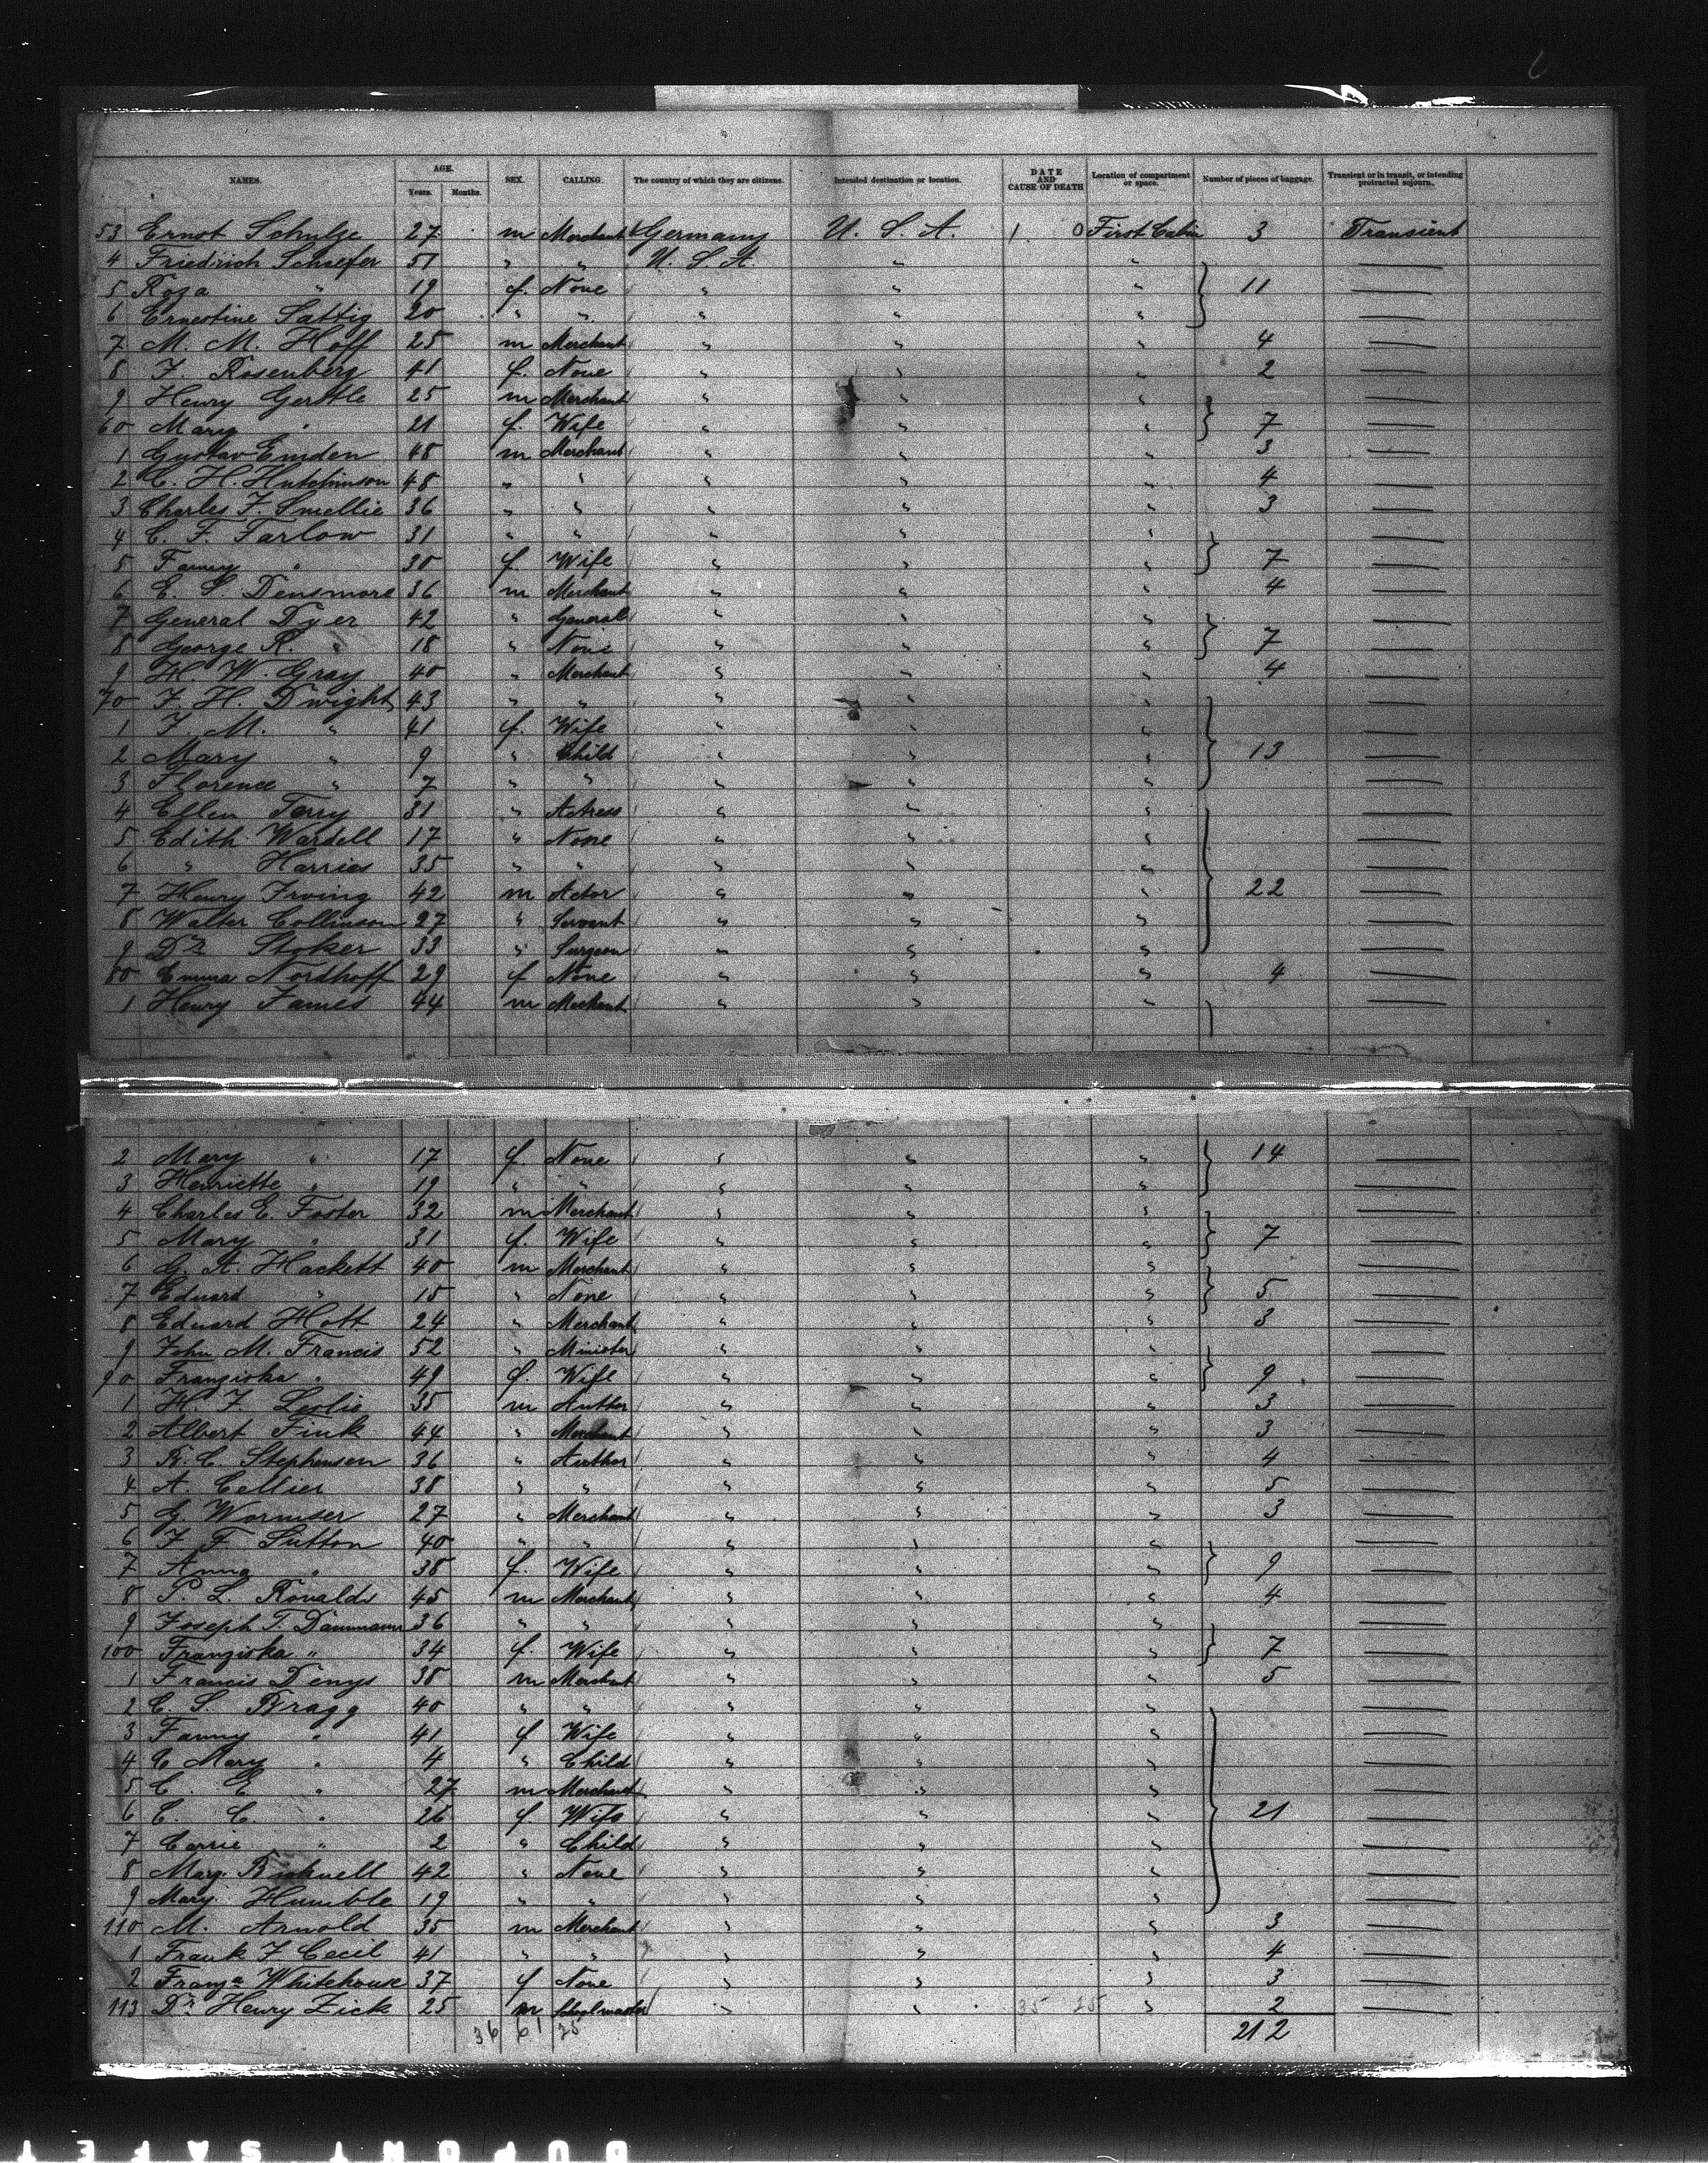 NAMES. AGE. Years. Months. SEX. CALLING. The country of which they are citizens. Intended destination or location. DATE AND CAUSE OF DEATH Location of compartment or space. Number of pieces of baggage. Transient or in transit, or intending protracted sojourn.
53 Ernst Schulze 27 m Merchant Germany U. S. A. First Cabin 3 Transient
4 Friedrich Schaefer 51 " " U. S. A. " "
5 Roza " 19 f. None " " " 11
6 Ernestine Sattig 20 " " " " "
7 M. M. Hoff 25 m Merchant " " " 4
8 F. Rosenberg 41 f. None " " " 2
9 Henry Gerstle 25 m Merchant " " "
60 Mary " 21 f. Wife " " " 7
1 Gustav Emden 48 m Merchant " " " 3
2 C. H. Hutchinson 48 " " " " " 4
3 Charles F. Smellie 36 " " " " " 3
4 C. F. Tarlow 31 " " " " "
5 Fanny " 30 f. Wife " " " 7
6 E. S. Densmore 36 m Merchant " " " 4
7 General Dyer 42 " General " " "
8 George R. " 18 " None " " " 7
9 H. W. Gray 40 " Merchant " " " 4
70 F. H. Dwight 43 " " " " "
1 F. M. " 41 f. Wife " " "
2 Mary " 9 " Child " " " 13
3 Florence " 7 " " " " "
4 Ellen Terry 31 " Actress " " "
5 Edith Wardell 17 " None " " "
6 " Harries 35 " " " " "
7 Henry Irving 42 m Actor " " " 22
8 Walter Collinson 27 " Servant " " "
9 Dr. Stoker 33 " Surgeon " " "
80 Emma Nordhoff 29 f None " " " 4
1 Henry James 44 m Merchant " " "
2 Mary " 17 f. None " " " 14
3 Henriette " 19 " " " " "
4 Charles E. Foster 32 m Merchant " " "
5 Mary " 31 f. Wife " " " 7
6 G. A. Hackett 40 m Merchant " " "
7 Eduard " 15 " None " " " 5
8 Eduard Hott 24 " Merchant " " " 3
9 John M. Francis 52 " Minister " " "
90 Franziska " 49 f. Wife " " " 9
1 H. F. Leslie 35 m Author " " " 3
2 Albert Fink 44 " Merchant " " " 3
3 B. C. Stephenson 36 " Author " " " 4
4 A. Cellier 38 " " " " " 5
5 G. Wormser 27 " Merchant " " " 3
6 F. F. Sutton 40 " " " " "
7 Anna " 38 f. Wife " " " 9
8 P. L. Ronalds 45 m Merchant " " " 4
9 Joseph T. Dammann 36 " " " " "
100 Franziska " 34 f. Wife " " " 7
1 Francis Denys 38 m Merchant " " " 5
2 C. S. Bragg 40 " " " " "
3 Fanny " 41 f Wife " " "
4 C Mary " 4 " Child " " "
5 C. E. " 27 m Merchant " " "
6 C. C. " 26 f. Wife " " " 21
7 Carrie " 2 " Child " " "
8 Marg. Bicknell 42 " None " " "
9 Mary Humble 19 " " " " "
110 M. Arnold 35 m Merchant " " " 3
1 Frank F Cecil 41 " " " " " 4
2 Franza Whitehouse 37 f None " " " 3
113 Dr. Henry Zick 25 m Schoolmaster " " " 2
36 61 75 212
DUPONT SAFETY